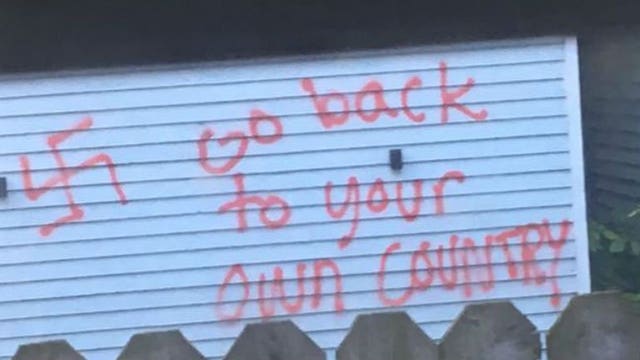 Go back
to your
own COUNTRY